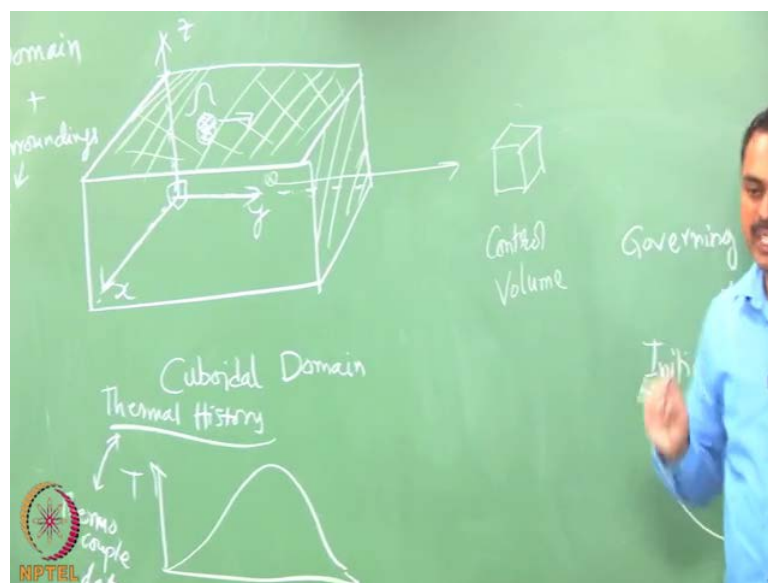 omain
+
rroundings
z
y
x
Control
Volume
Governing
Initi
Cuboidal Domain
Thermal History
T
Thermo
couple
NPTEL